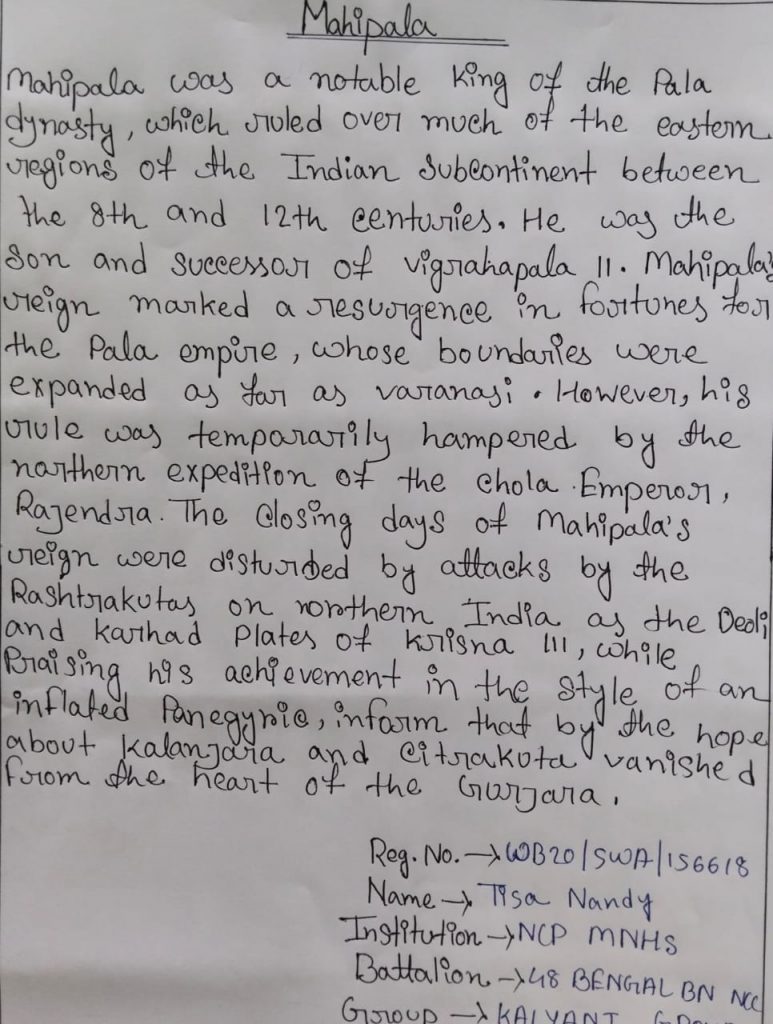 Mahipala
Mahipala was a notable King of the Pala
dynasty, which ruled over much of the eastern
regions of the Indian Subcontinent between
the 8th and 12th centuries. He was the
Son and successor of vigrahapala II. Mahipala's
reign marked a resurgence in fortunes for
the Pala empire, whose boundaries were
expanded as far as varanasi. However, his
rule was tempararily hampered by the
narthern expedition of the chola Emperor,
Rajendra. The Closing days of Mahipala's
reign were disturbed by attacks by the
Rashtrakutas on northern India as the Deoli
and karhad Plates of Krisna III, while
Praising his achievement in the style of an
inflated Panegyric, inform that by the hope
about Kalanjara and Citrakuta vanished
from the heart of the Gurjara.
Reg. No. → WB20/SWA/156618
Name → Tisa Nandy
Institution → NCP MNHS
Battalion → 48 BENGAL BN NCC
Group → KALYANI